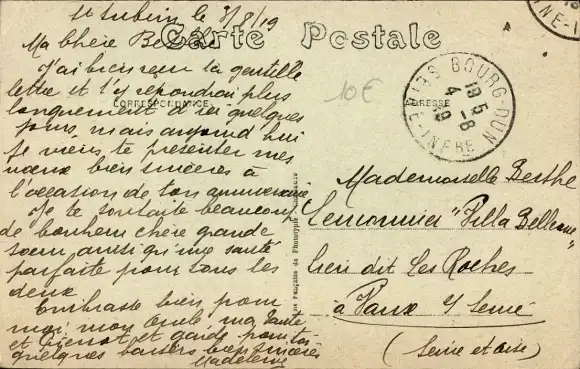 St Aubin le 3/8/19
Carte Postale
CORRESPONDANCE
ADRESSE
10€
BOURG-DUN
19 5
4 -8
19
SEINE-INFRE
Ma Chère Berthe
J'ai bien reçu ta gentille
lettre et t'y répondrai plus
longuement d'ici quelques
jours, mais aujourd'hui
je viens te présenter mes
vœux bien sincères à
l'occasion de ton anniversaire
Je te souhaite beaucoup
de bonheur chère grande
sœur, ainsi qu'une santé
parfaite pour tous les
deux
Embrasse bien pour
moi, mon Oncle ma Tante
et Pierrot et garde pour toi
quelques baisers bien sincères
Madeleine
Mademoiselle Berthe
Lemonnier "Villa Bellevue"
lieu dit Les Roches
à Vaux s/ Seine
(Seine et Oise)